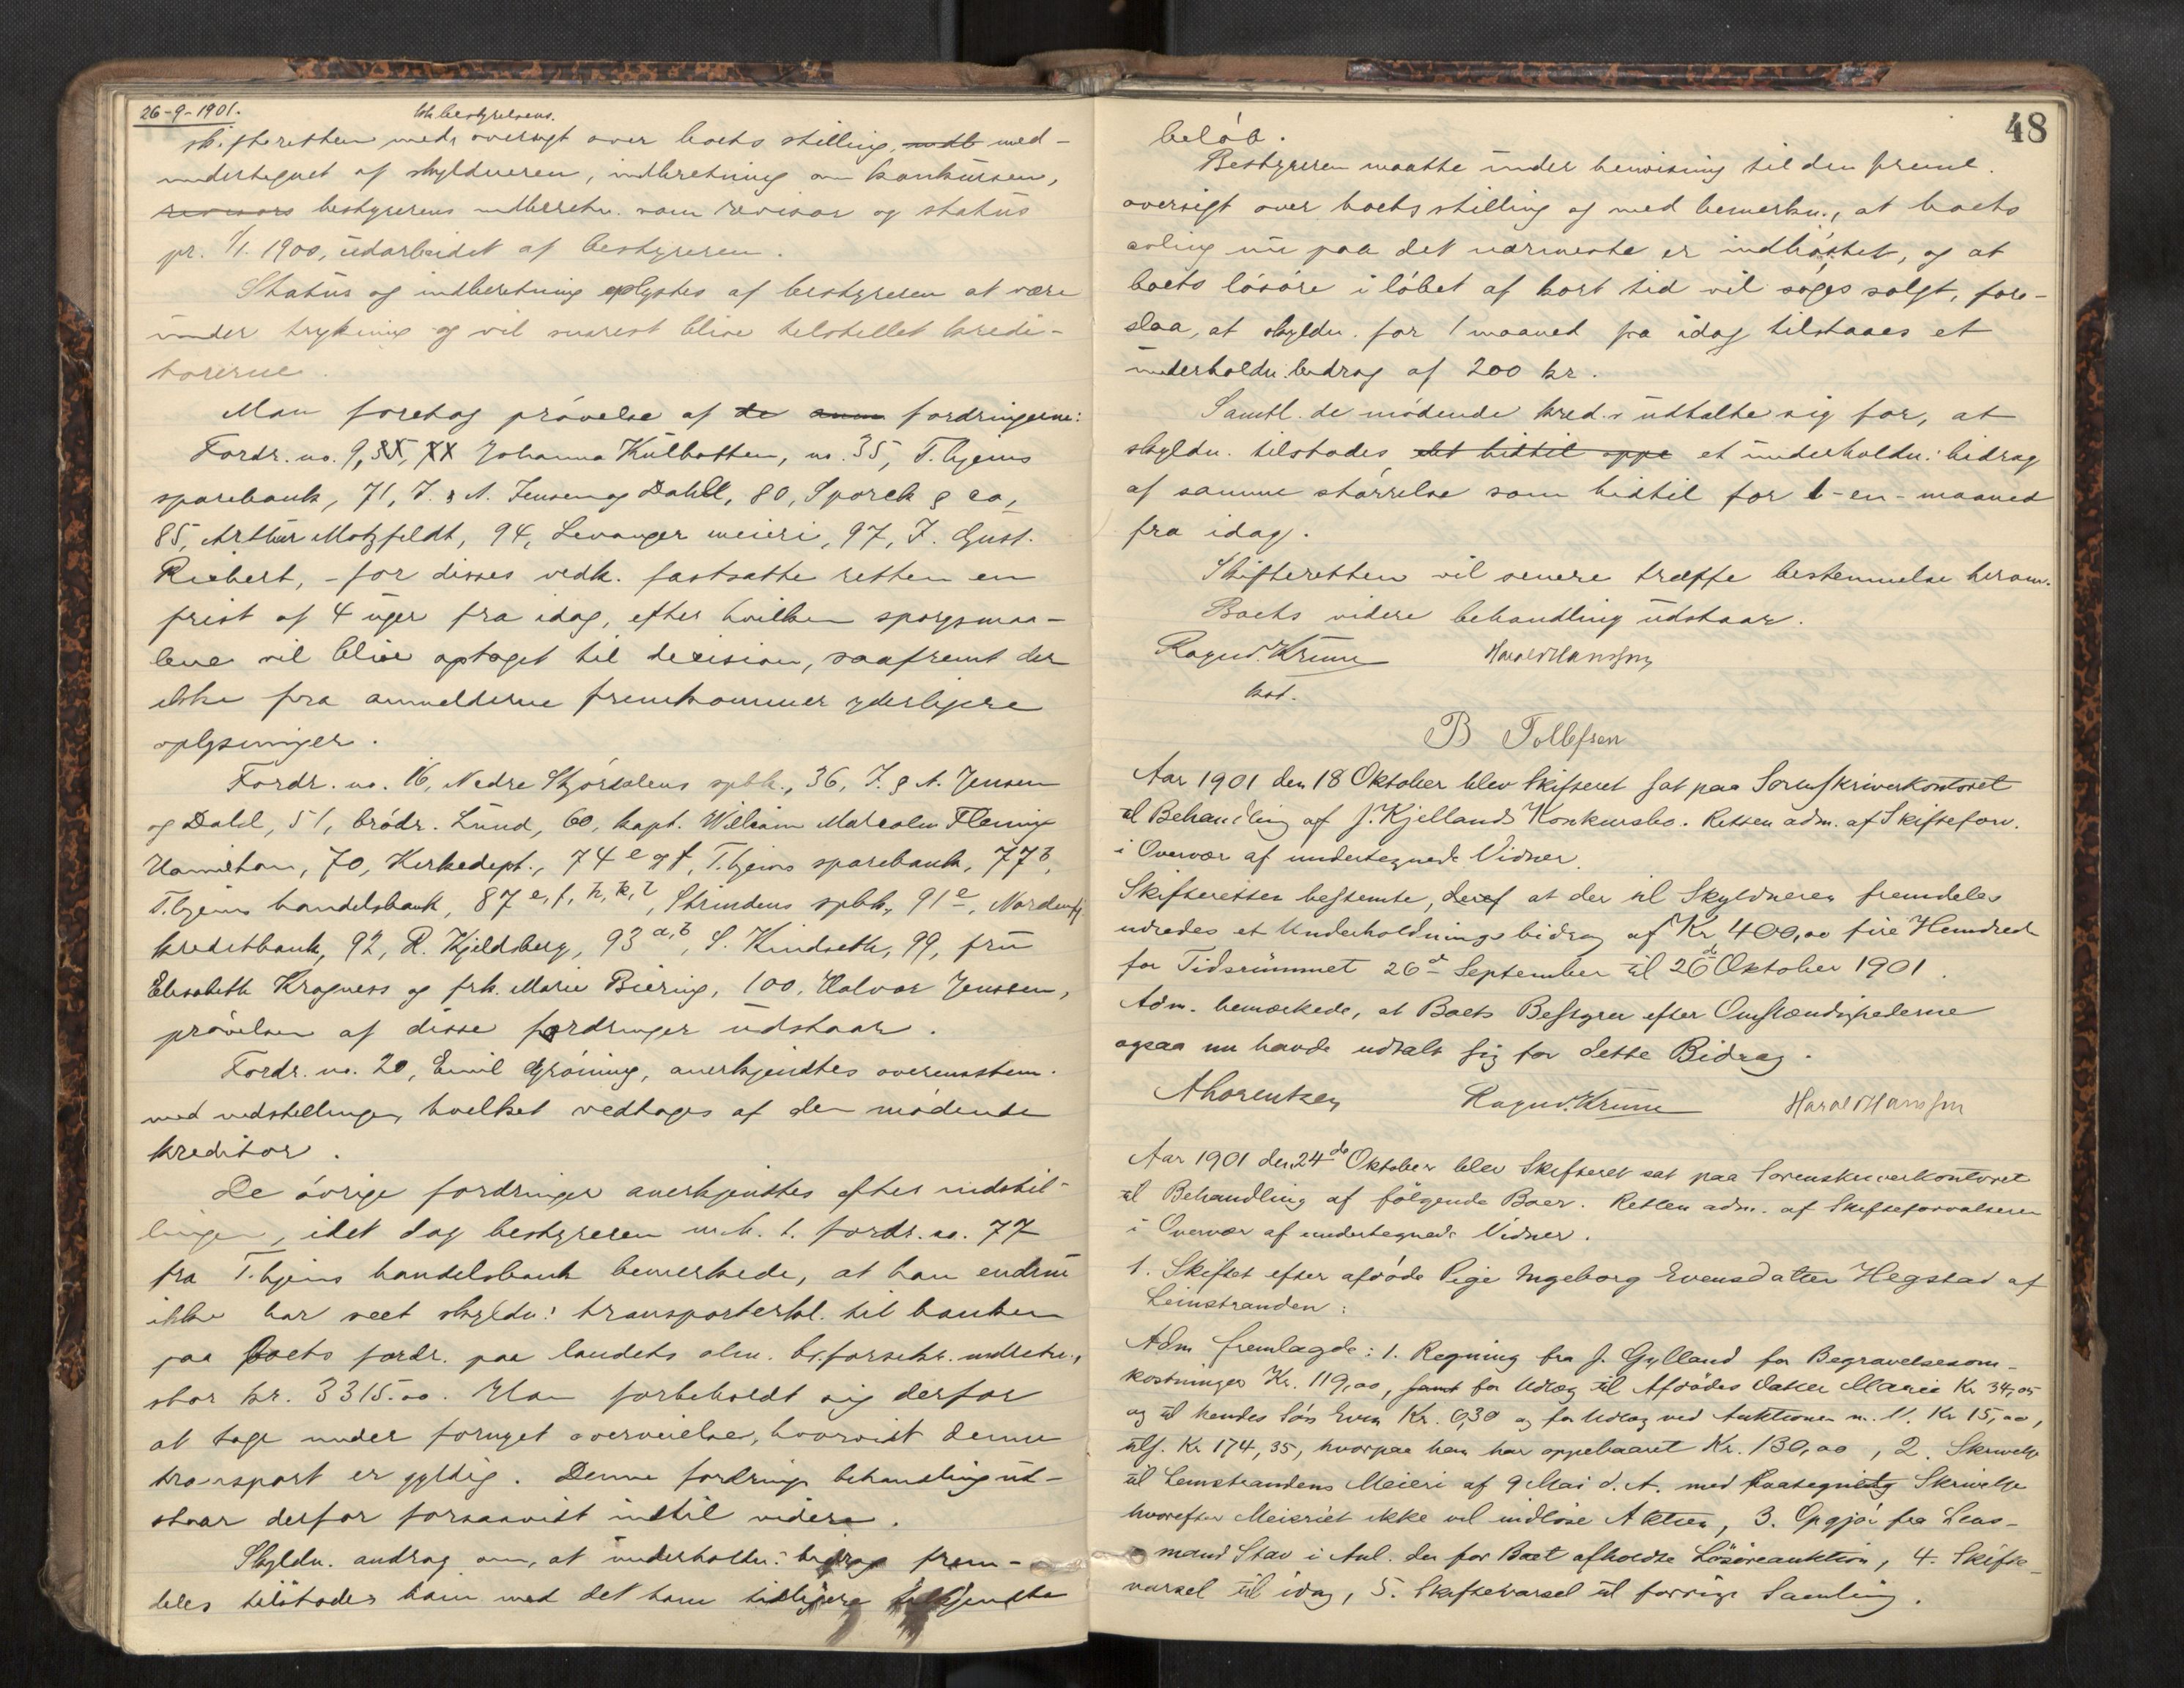 26-9-1901.
skifteretten med oversigt over boets stilling, med-
undertegnet af skyldneren, indberetning om konkursen,
revisors bestyrerens indberetn. som revisor og status
pr. 1/1. 1900, udarbeidet af bestyreren.
Status og indberetning oplystes af bestyreren at være
under trykning og vil snarest blive tilstillet kredi-
torerne.
Man foretog prøvelse af de fordringerne:
Fordr. no. 9, Johanna Kulbotten, no. 35, T.hjems
sparebank, 71, J. & A. Jensen og Dahll, 80, Sporck & co,
85, Arthur Motzfeldt, 94, Levanger meieri, 97, J. Gust.
Richert, - for disses vedk. fastsatte retten en
frist af 4 uger fra idag, efter hvilken spørgsmaa-
lene vil blive optaget til decision, saafremt der
ikke fra anmelderne fremkommer yderligere
oplysninger.
Fordr. no. 16, Nedre Stjørdalens spbk., 36, J. & A. Jensen
og Dahl, 51, brødr. Lund, 60, kapt. William Malcolm Fleming
Hamilton, 70, Kirkedept., 74 e og f, T.hjems sparebank, 77 b,
T.hjems handelsbank, 87 e, f, h, k, l, Strindens spbk., 91 e, Nordenfj.
kreditbank, 92, R. Kjeldsberg, 93 a, b, S. Kindseth, 99, fru
Elisabeth Kragness og frk. Marie Biering, 100, Halvor Jenssen,
prøvelsen af disse fordringer udstaar.
Fordr. no. 20, Emil Grøning, anerkjendtes overensstem.
med indstillingen, hvilket vedtoges af den mødende
kreditor.
De øvrige fordringer anerkjendtes efter indstil-
lingen, idet dog bestyreren m. h. t. fordr. no. 77
fra T.hjems handelsbank bemerkede, at han endnu
ikke har seet skyldn: transporterkl. til banken
paa boets fordr. paa landets alm. br.forsikr. indretn.,
stor kr. 3315.00. Han forbeholdt sig derfor
at tage under fornyet overveielse, hvorvidt denne
transport er gyldig. Denne fordrings behandling ud-
staar derfor forsaavidt indtil videre.
Skyldn. androg om, at underholdn: bidrag frem-
deles tilstodes ham med det ham tidligere tilkjendte
48
beløb.
Bestyreren maatte under henvisning til den freml.
oversigt over boets stilling og med bemerkn., at boets
avling nu paa det nærmeste er indhøstet, og at
boets løsøre i løbet af kort tid vil søges solgt, fore-
slaa, at skyldn. for 1 maaned fra idag tilstaaes et
underholdn. bidrag af 200 kr.
Samtl. de mødende kred.r udtalte sig for, at
skyldn. tilstodes det hittil oppe et underholdn: bidrag
af samme størrelse som hidtil for 1-en-maaned
fra idag.
Skifteretten vil senere træffe bestemmelse herom.
Boets videre behandling udstaar.
Ragnv. Krum Harald Hansson
kst.
B Tollefsen
Aar 1901 den 18 Oktober blev Skifteret sat paa Sorenskriverkontoret
til Behandling af J. Kjellands Konkursbo. Retten adm. af Skifteforv.
i Overvær af undertegnede Vidner.
Skifteretten bestemte, at der til Skyldneren fremdeles
udredes et Underholdningsbidrag af Kr 400,00 fire Hundrede
for Tidsrummet 26de September til 26de Oktober 1901.
Adm. bemærkede, at Boets Bestyrer efter Omstændighederne
ogsaa nu havde udtalt sig for dette Bidrag.
A Lorentzen Ragnv. Krum Harald Hansson
Aar 1901 den 24de Oktober blev Skifteret sat paa Sorenskriverkontoret
til Behandling af følgende Boer. Retten adm. af Skifteforvalteren
i Overvær af undertegnede Vidner.
1. Skiftet efter afdøde Pige Ingeborg Evensdatter Hegstad af
Leinstranden:
Adm fremlagde: 1. Regning fra J. Gylland for Begravelsesom-
kostninger Kr. 119,00, samt for Udlæg til Afdødes Datter Marie Kr 34,05
og til hendes Søn Even Kr. 6,30 og for Udlæg ved Auktionen m. V. Kr 15,00,
tils. Kr 174,35, hvorpaa han har oppebaaret Kr. 130,00, 2. Skrivelse
til Leinstrandens Meieri af 9 Mai d. A. med Paategning Skrivelse
hvorefter Meieriet ikke vil indløse Aktien, 3. Opgjør fra Lens-
mand Stav i Anl. den for Boet afholdte Løsøreauktion, 4. Skifte-
varsel til idag, 5. Skiftevarsel til forrige Samling.